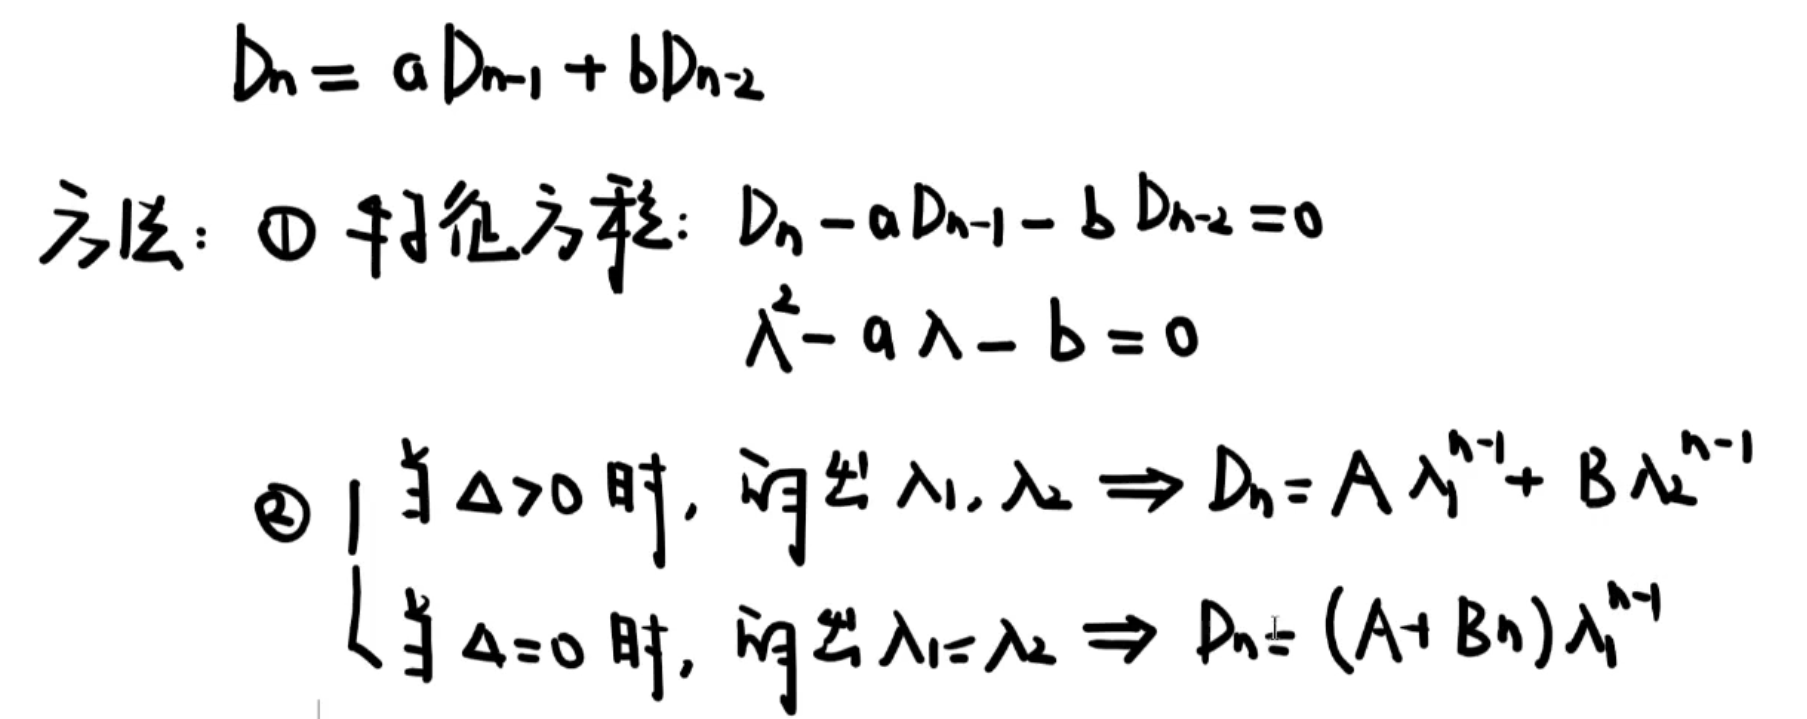 Dn = aDn-1 + bDn-2
方法: ① 特征方程: Dn - aDn-1 - bDn-2 = 0
λ² - aλ - b = 0
② 当 Δ>0 时, 解出 λ₁, λ₂ ⇒ Dn = Aλ₁ⁿ⁻¹ + Bλ₂ⁿ⁻¹
当 Δ=0 时, 解出 λ₁=λ₂ ⇒ Dn = (A+Bn)λ₁ⁿ⁻¹